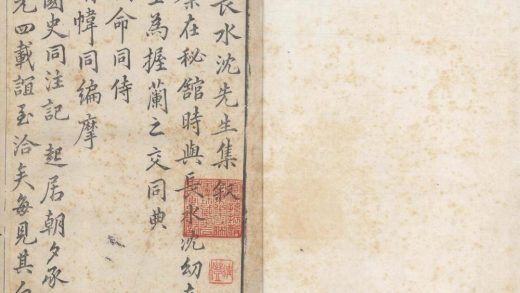 長水沈先生集叙
在秘館時與長水沈幼
為握蘭之交同典
命同侍
幃同編摩
國史同注記起居朝夕承
四載誼至洽矣每見其